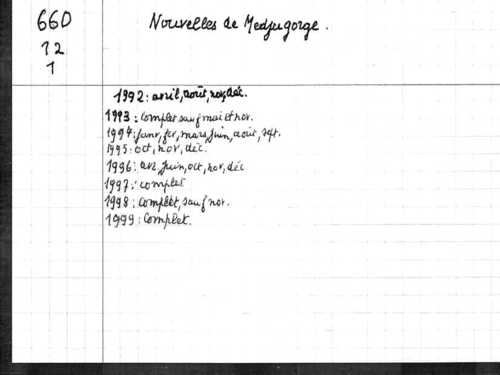 660
12
1
Nouvelles de Medjugorge.
1992: avril, août, nov, déc.
1993: complet sauf mai et nov.
1994: janv, fev, mars, juin, août, sept.
1995: oct, nov, déc.
1996: avr, juin, oct, nov, déc
1997: complet
1998: complet, sauf nov.
1999: Complet.